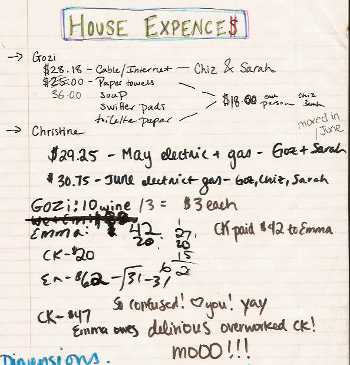 HOUSE EXPENCE$
→ Gozi
$28.18 - Cable/Internet — Chiz & Sarah
$25.00 - Paper towels
36.00 soap
swiffer pads
$18.00 person Chiz Sarah
moved in June
→ Christina
$29.25 - May electric + gas - Goz + Sarah
$30.75 - June electric + gas - Goz, Chiz, Sarah
Gozi: 10 wine /3 = $3 each
Emma: $42
20
CK paid $42 to Emma
CK - $20
Em - $62
CK - $47
So confused! ♡ you! yay
Emma owes delirious overworked CK!
MOOO!!!
Dimensions.